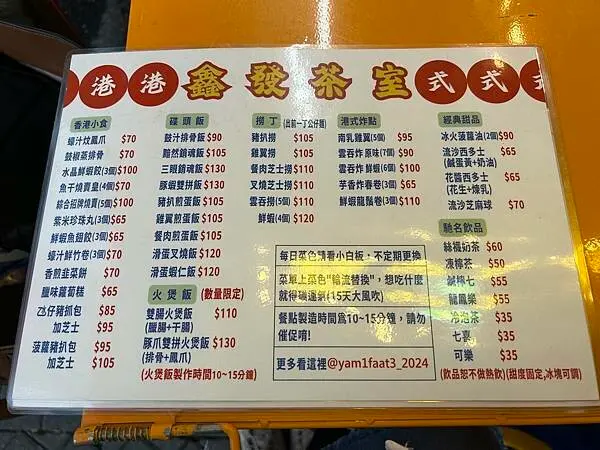 港 港 鑫 發 茶 室 式 式
香港小食
蠔汁炆鳳爪 $70
鼓椒蒸排骨 $70
水晶鮮蝦餃(3個)$100
魚干燒賣皇(4個)$70
綜合招牌燒賣(5個)$100
紫米珍珠丸(3個)$65
鮮蝦魚翅餃(3個)$65
蠔汁鮮竹卷(3個)$65
香煎韭菜餅 $70
臘味蘿蔔糕 $65
氹仔豬抓包 $85
加芝士 $95
菠蘿豬扒包 $95
加芝士 $105
碟頭飯
鼓汁排骨飯 $90
黯然銷魂飯 $105
三眼銷魂飯 $130
豚蝦雙拼飯 $130
豬扒煎蛋飯 $105
雞翼煎蛋飯 $105
餐肉煎蛋飯 $105
滑蛋叉燒飯 $120
滑蛋蝦仁飯 $120
火煲飯 (數量限定)
雙腸火煲飯 $110
(臘腸+干腸)
豚爪雙拼火煲飯 $130
(排骨+鳳爪)
(火煲飯製作時間10~15分鐘)
撈丁(出前一丁公仔麵)
豬扒撈 $105
雞翼撈 $105
餐肉芝士撈 $110
叉燒芝士撈 $110
雲吞撈(5個) $110
鮮蝦(4個) $120
港式炸點
南乳雞翼(5個) $95
雲吞炸 原味(7個) $90
雲吞炸 鮮蝦(6個) $100
芋香炸春卷(3個) $65
鮮蝦龍鬚卷(3個) $110
經典甜品
冰火菠蘿油(2個)$90
流沙西多士 $65
(鹹蛋黃+奶油)
花醬西多士 $65
(花生+煉乳)
流沙芝麻球 $70
馳名飲品
絲襪奶茶 $60
凍檸茶 $50
鹹檸七 $55
龍鳳樂 $55
冷泡茶 $35
七喜 $35
可樂 $35
(飲品恕不做熱飲)(甜度固定,冰塊可調)
每日菜色請看小白板，不定期更換
菜單上菜色"輪流替換"，想吃什麼
就得碰運氣(15天大風吹)
餐點製造時間為10~15分鐘，請勿
催促唷!
更多看這裡@yam1faat3_2024